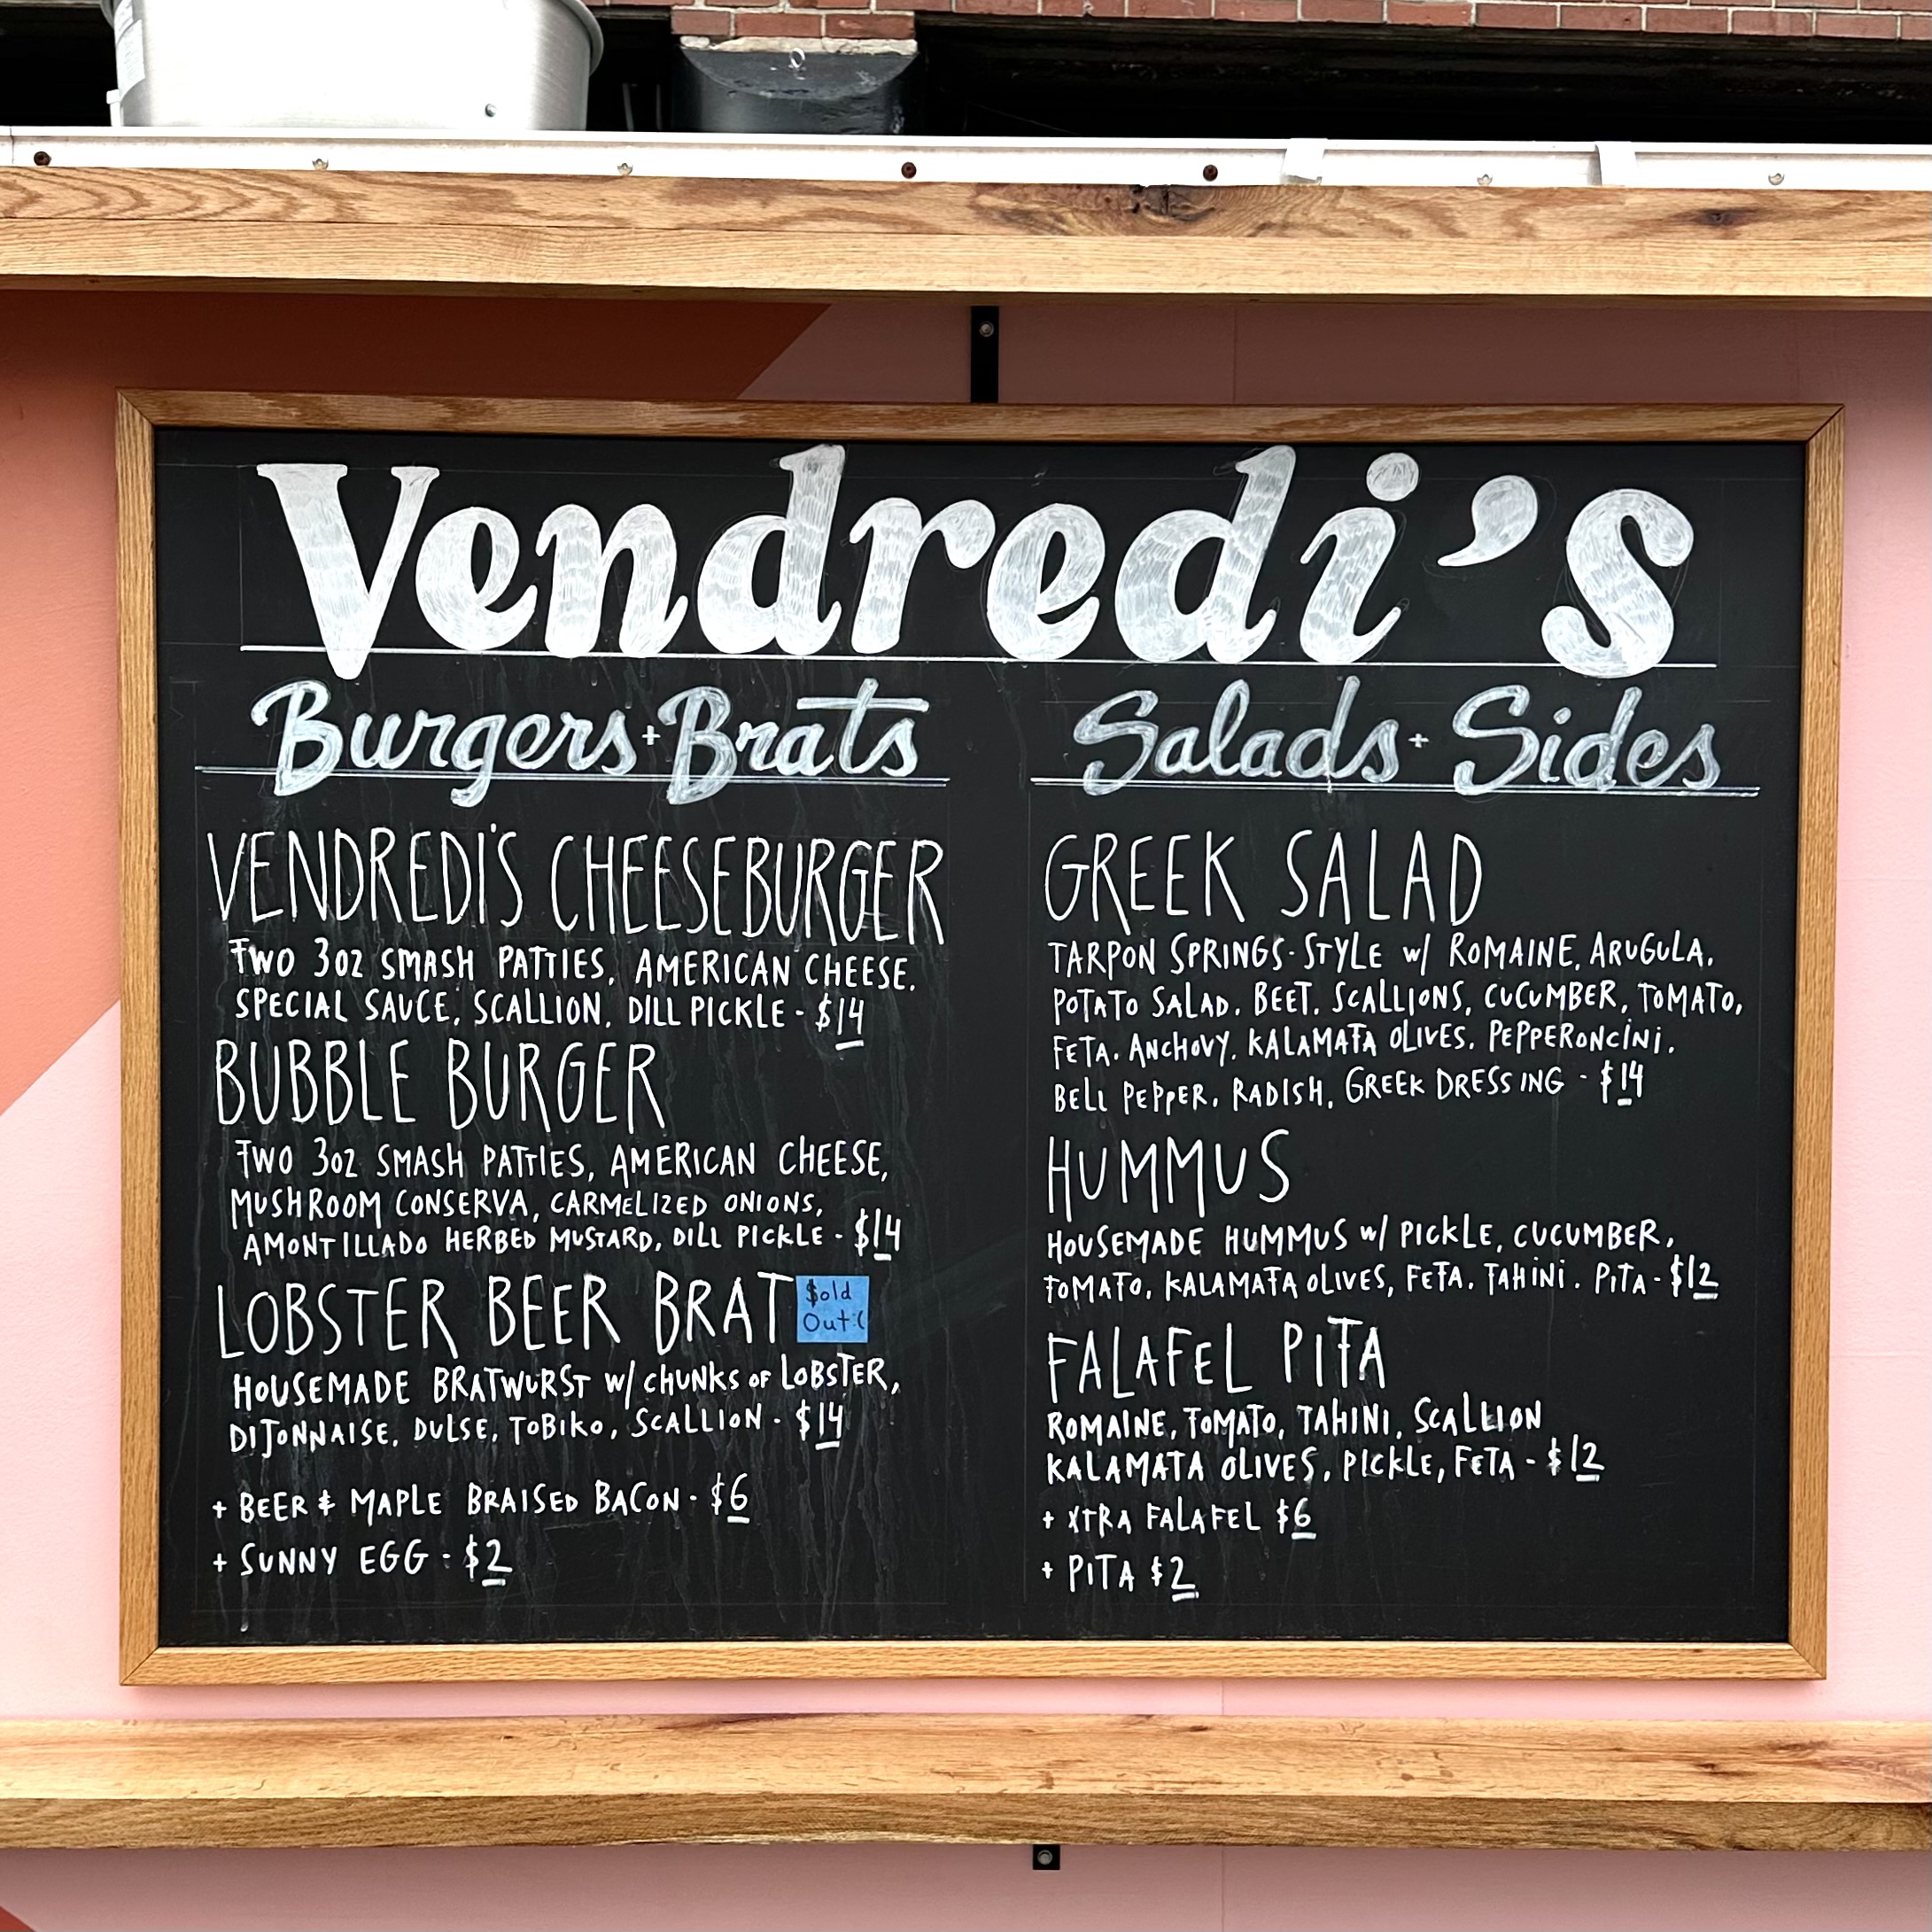 Vendredi's
Burgers + Brats
VENDREDI'S CHEESEBURGER
TWO 3oz SMASH PATTIES, AMERICAN CHEESE,
SPECIAL SAUCE, SCALLION, DILL PICKLE - $14
BUBBLE BURGER
TWO 3oz SMASH PATTIES, AMERICAN CHEESE,
MUSHROOM CONSERVA, CARMELIZED ONIONS,
AMONTILLADO HERBED MUSTARD, DILL PICKLE - $14
LOBSTER BEER BRAT
$old
Out:(
HOUSEMADE BRATWURST w/ CHUNKS OF LOBSTER,
DIJONNAISE, DULSE, TOBIKO, SCALLION - $14
+ BEER & MAPLE BRAISED BACON - $6
+ SUNNY EGG - $2
Salads + Sides
GREEK SALAD
TARPON SPRINGS-STYLE w/ ROMAINE, ARUGULA,
POTATO SALAD, BEET, SCALLIONS, CUCUMBER, TOMATO,
FETA, ANCHOVY, KALAMATA OLIVES, PEPPERONCINI,
BELL PEPPER, RADISH, GREEK DRESSING - $14
HUMMUS
HOUSEMADE HUMMUS w/ PICKLE, CUCUMBER,
TOMATO, KALAMATA OLIVES, FETA, TAHINI, PITA - $12
FALAFEL PITA
ROMAINE, TOMATO, TAHINI, SCALLION
KALAMATA OLIVES, PICKLE, FETA - $12
+ XTRA FALAFEL $6
+ PITA $2